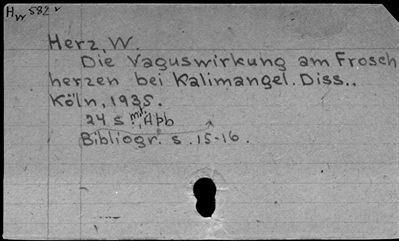 Hw 582
Herz, W.
Die Vaguswirkung am Frosch
herzen bei Kalimangel. Diss..
Köln, 1935.
24 s. mit Abb
Bibliogr. s. 15-16.